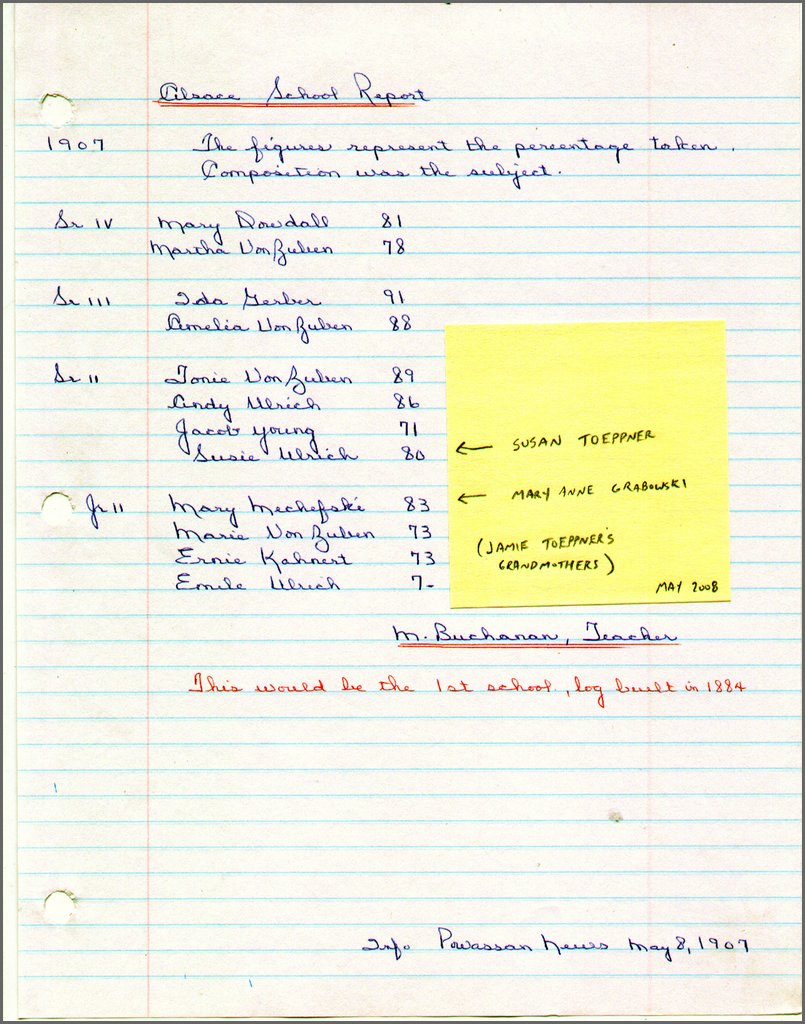 Alsace School Report
1907 The figures represent the percentage taken.
Composition was the subject.
Sr IV Mary Dowdall 81
Martha VonZuben 78
Sr III Ida Gerber 91
Amelia VonZuben 88
Sr II Tonie VonZuben 89
Andy Ulrich 86
Jacob Young 71
Susie Ulrich 80
← SUSAN TOEPPNER
Jr II Mary Mechefske 83
← MARY ANNE GRABOWSKI
Marie VonZuben 73
Ernie Kahnert 73
(JAMIE TOEPPNER'S
GRANDMOTHERS)
Emile Ulrich 7-
MAY 2008
M. Buchanan, Teacher
This would be the 1st school, log built in 1884
Info Powassan News May 8, 1907